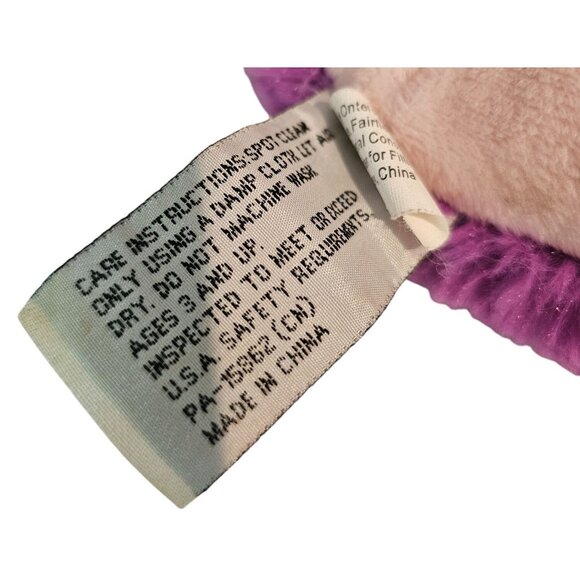 CARE INSTRUCTIONS: SPOT CLEAN
ONLY USING A DAMP CLOTH. LET AIR
DRY. DO NOT MACHINE WASH
AGES 3 AND UP.
INSPECTED TO MEET OR EXCEED
U.S.A. SAFETY REQUIREMENTS.
PA-15862 (CN)
MADE IN CHINA
for
China